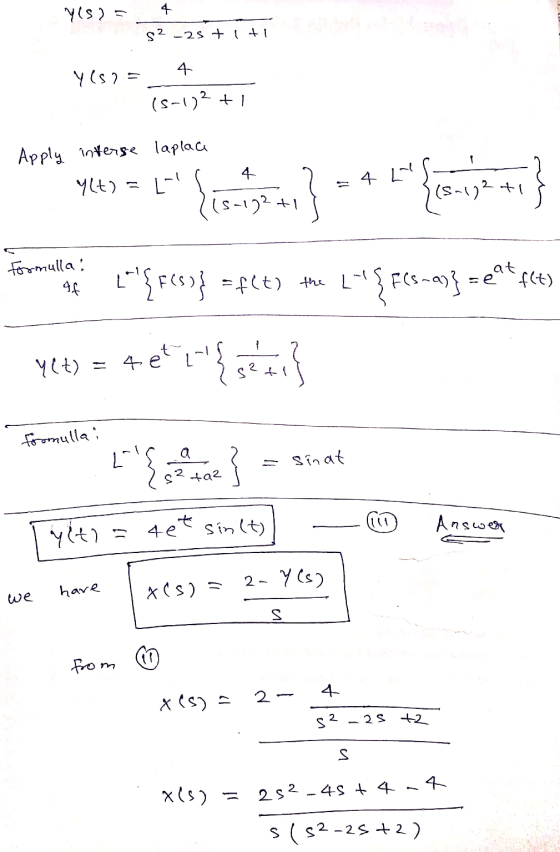 Y(s) = 4 / (s² - 2s + 1 + 1)
Y(s) = 4 / ((s-1)² + 1)
Apply inverse laplace
Y(t) = L⁻¹ { 4 / ((s-1)² + 1) } = 4 L⁻¹ { 1 / ((s-1)² + 1) }
Formulla:
If L⁻¹{F(s)} = f(t) the L⁻¹{F(s-a)} = e^{at} f(t)
Y(t) = 4 e^t L⁻¹ { 1 / (s² + 1) }
formulla:
L⁻¹ { a / (s² + a²) } = sin at
Y(t) = 4e^t sin(t) — (iii) Answer
we have X(s) = (2 - Y(s)) / s
from (ii)
X(s) = (2 - 4 / (s² - 2s + 2)) / s
X(s) = (2s² - 4s + 4 - 4) / (s(s² - 2s + 2))